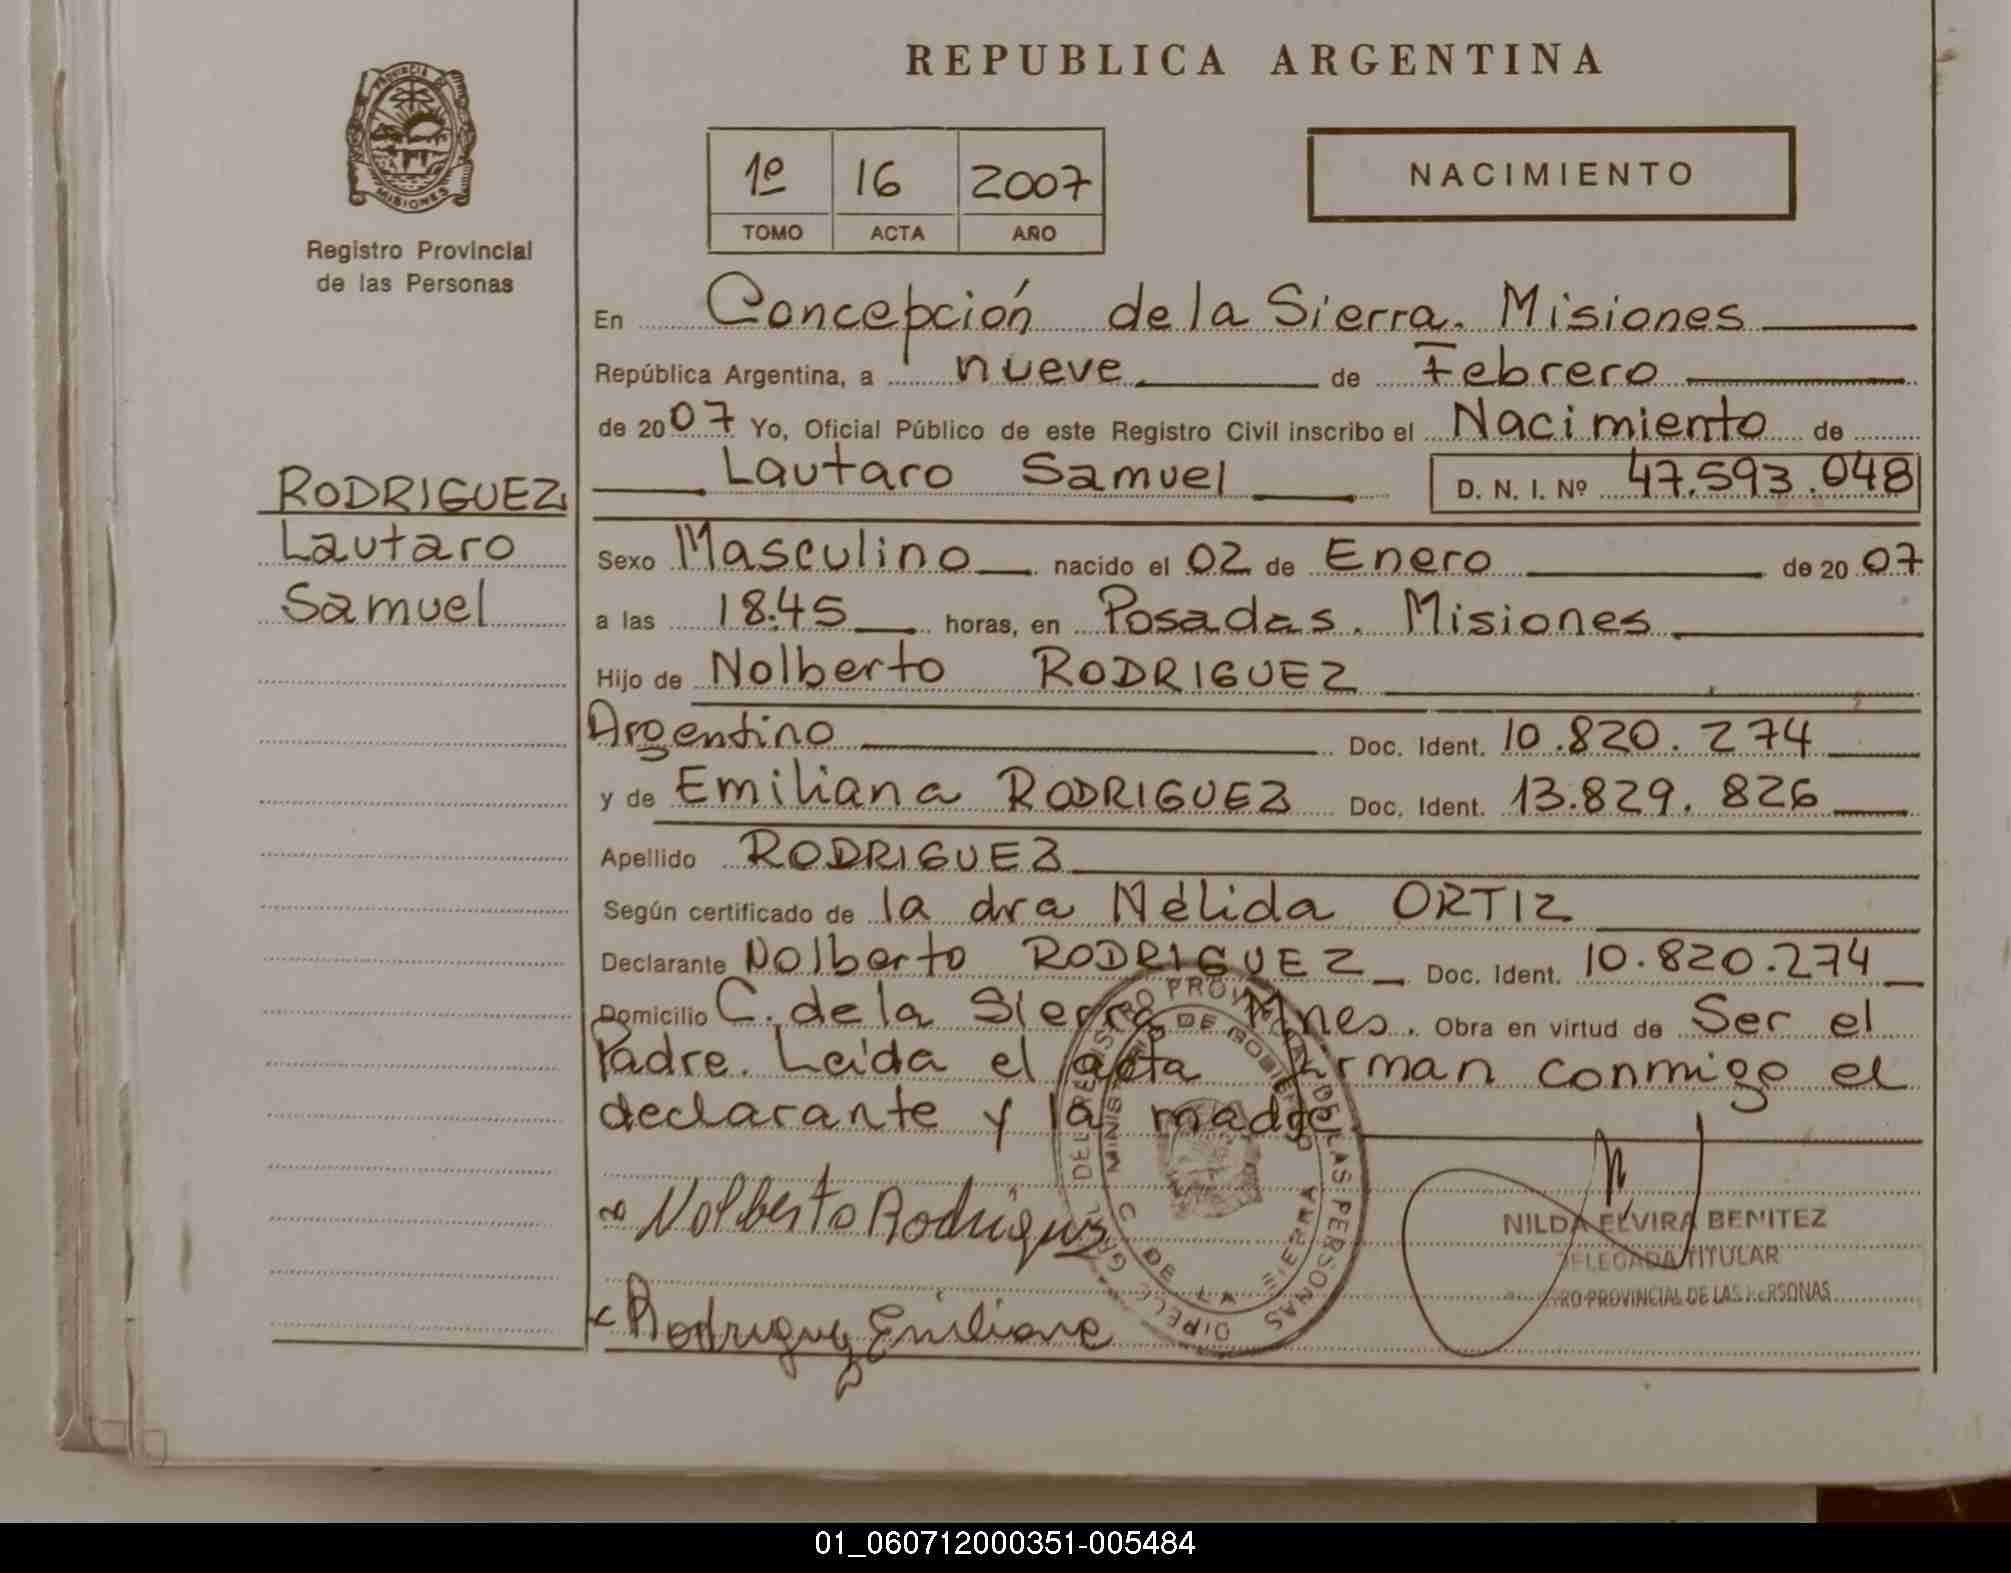 REPUBLICA ARGENTINA
PROVINCIA DE
MISIONES
Registro Provincial
de las Personas
1º 16 2007
TOMO ACTA AÑO
NACIMIENTO
En Concepción de la Sierra. Misiones
República Argentina, a nueve de Febrero
de 2007 Yo, Oficial Público de este Registro Civil inscribo el Nacimiento de
Lautaro Samuel D. N. I. Nº 47.593.048
RODRIGUEZ
Lautaro
Samuel
Sexo Masculino nacido el 02 de Enero de 2007
a las 18:45 horas, en Posadas. Misiones
Hijo de Nolberto RODRIGUEZ
Argentino Doc. Ident. 10.820.274
y de Emiliana RODRIGUEZ Doc. Ident. 13.829.826
Apellido RODRIGUEZ
Según certificado de la dra Nélida ORTIZ
Declarante Nolberto RODRIGUEZ Doc. Ident. 10.820.274
Domicilio C. de la Sierra Mnes. Obra en virtud de Ser el
Padre. Leida el acta firman conmigo el
declarante y la madre
Nolberto Rodriguez
Rodriguez Emiliana
DEL REGISTRO PROVINCIAL DE LAS PERSONAS
MINISTERIO DE GOBIERNO
C. DE LA SIERRA
NILDA ELVIRA BENITEZ
DELEGADA TITULAR
PROVINCIAL DE LAS PERSONAS
01_060712000351-005484